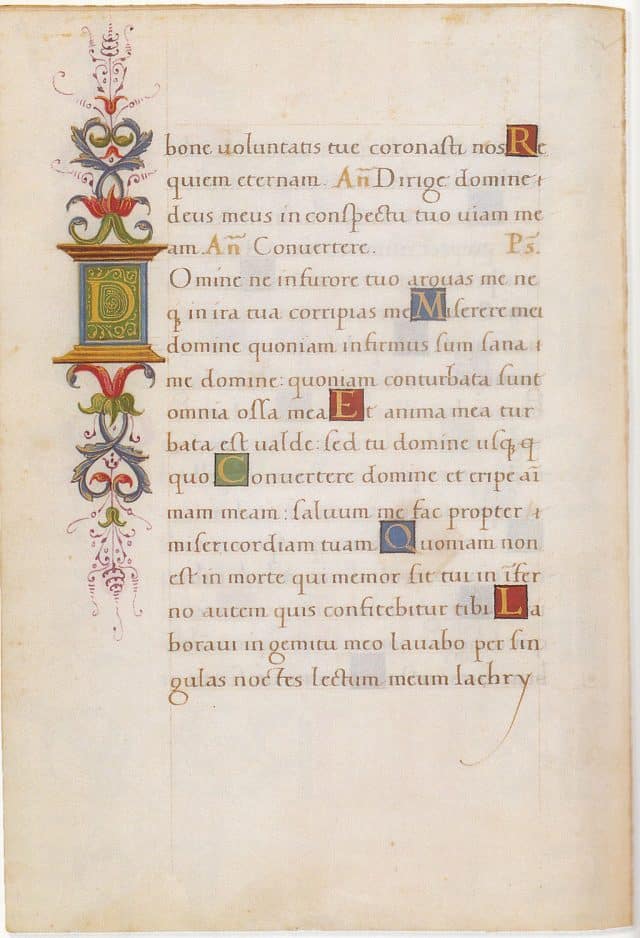 bone uoluntatis tue coronasti nos Re
quiem eternam. Añ Dirige domine
deus meus in conspectu tuo uiam me
am. Añ Conuertere. Ps̄.
Domine ne in furore tuo arguas me ne
q̨ in ira tua corripias me Miserere mei
domine quoniam infirmus sum sana
me domine: quoniam conturbata sunt
omnia ossa mea Et anima mea tur
bata est ualde: sed tu domine usq̨ q
quo Conuertere domine et eripe aī
mam meam: saluum me fac propter
misericordiam tuam Quoniam non
est in morte qui memor sit tui in īfer
no autem quis confitebitur tibi La
boraui in gemitu meo lauabo per sin
gulas noctes lectum meum lachry